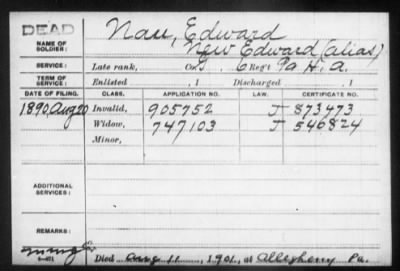 DEAD
NAME OF SOLDIER: Nau, Edward
New Edward (alias)
SERVICE: Late rank, Co. G, 6 Reg't Pa H. A.
TERM OF SERVICE: Enlisted , 1 Discharged , 1
DATE OF FILING. CLASS. APPLICATION NO. LAW. CERTIFICATE NO.
1890, Aug 20 Invalid, 905752 J 873473
Widow, 747103 J 546824
Minor,
ADDITIONAL SERVICES:
REMARKS:
Died Aug 11, 1901, at Allegheny Pa.